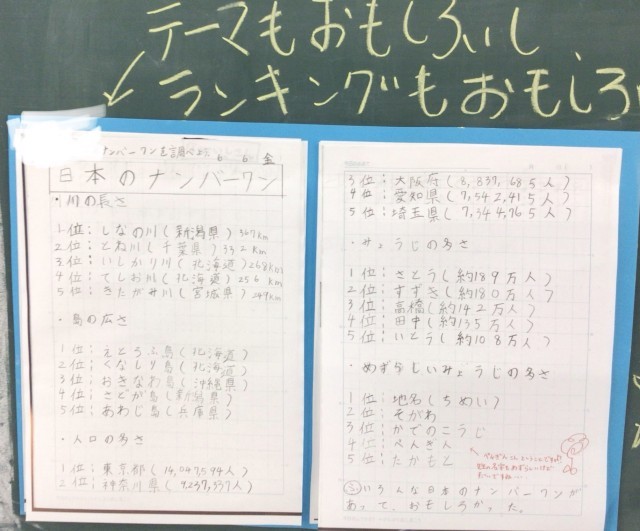 テーマもおもしろいし
ランキングもおもしろい
ナンバーワンを調べよう 6 6 金
日本のナンバーワン
・川の長さ
1位:しなの川(新潟県)367km
2位:とね川(千葉県)322km
3位:いしかり川(北海道)268km
4位:てしお川(北海道)256km
5位:きたかみ川(宮城県)249km
・島の広さ
1位:えとろふ島(北海道)
2位:くなしり島(北海道)
3位:おきなわ島(沖縄県)
4位:さどが島(新潟県)
5位:あわじ島(兵庫県)
・人口の多さ
1位:東京都(14,047,594人)
2位:神奈川県(9,237,337人)
3位:大阪府(8,837,685人)
4位:愛知県(7,542,415人)
5位:埼玉県(7,344,765人)
・みょうじの多さ
1位:さとう(約189万人)
2位:すずき(約180万人)
3位:高橋(約142万人)
4位:田中(約135万人)
5位:いとう(約108万人)
・めずらしいみょうじの多さ
1位:地名(ちめい)
2位:そがあ
3位:かでのこうじ
4位:ぺんぎん
5位:たかもと
いろんな日本のナンバーワンが
あって、おもしろかった。